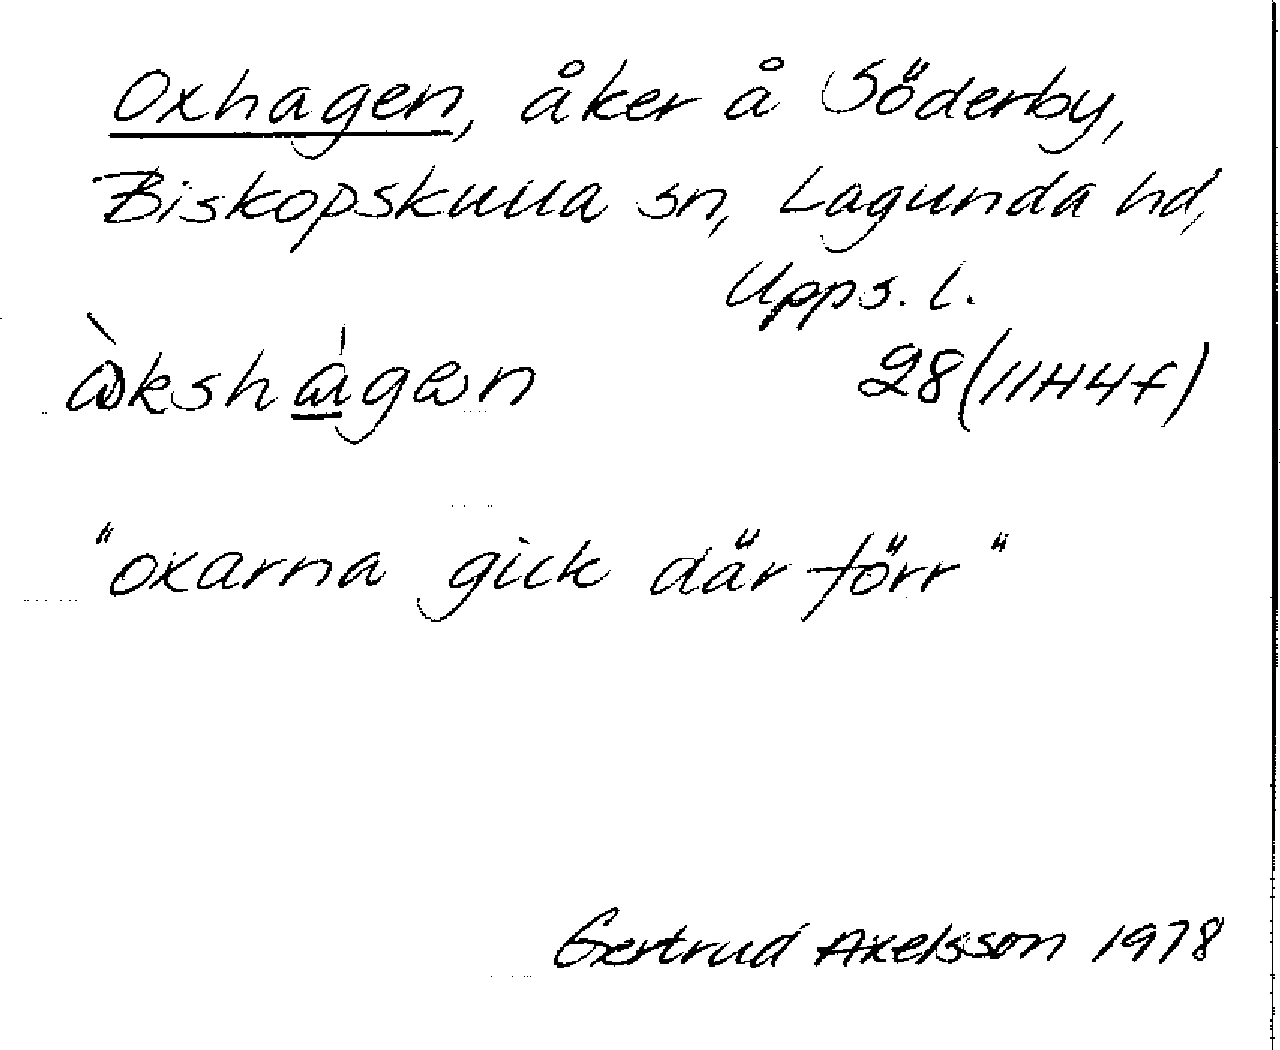 Oxhagen, åker å Söderby,
Biskopskulla sn, Lagunda hd,
Upps. l.
28(11H4f)
"oxarna gick där förr"
Gertrud Axelsson 1978